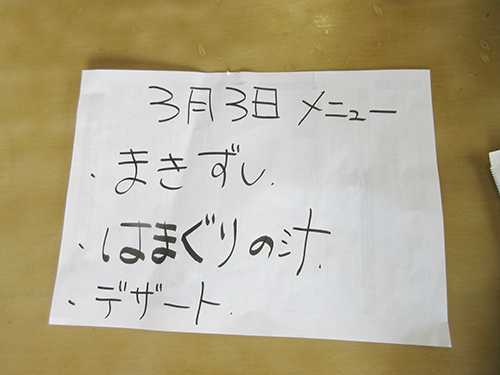 3月3日 メニュー
・まきずし.
・はまぐりの汁.
・デザート.